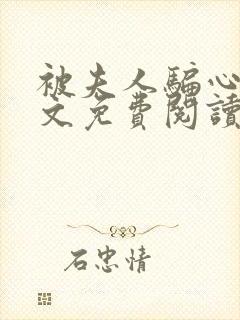 被夫人騙心
文免費閱讀
石忠情